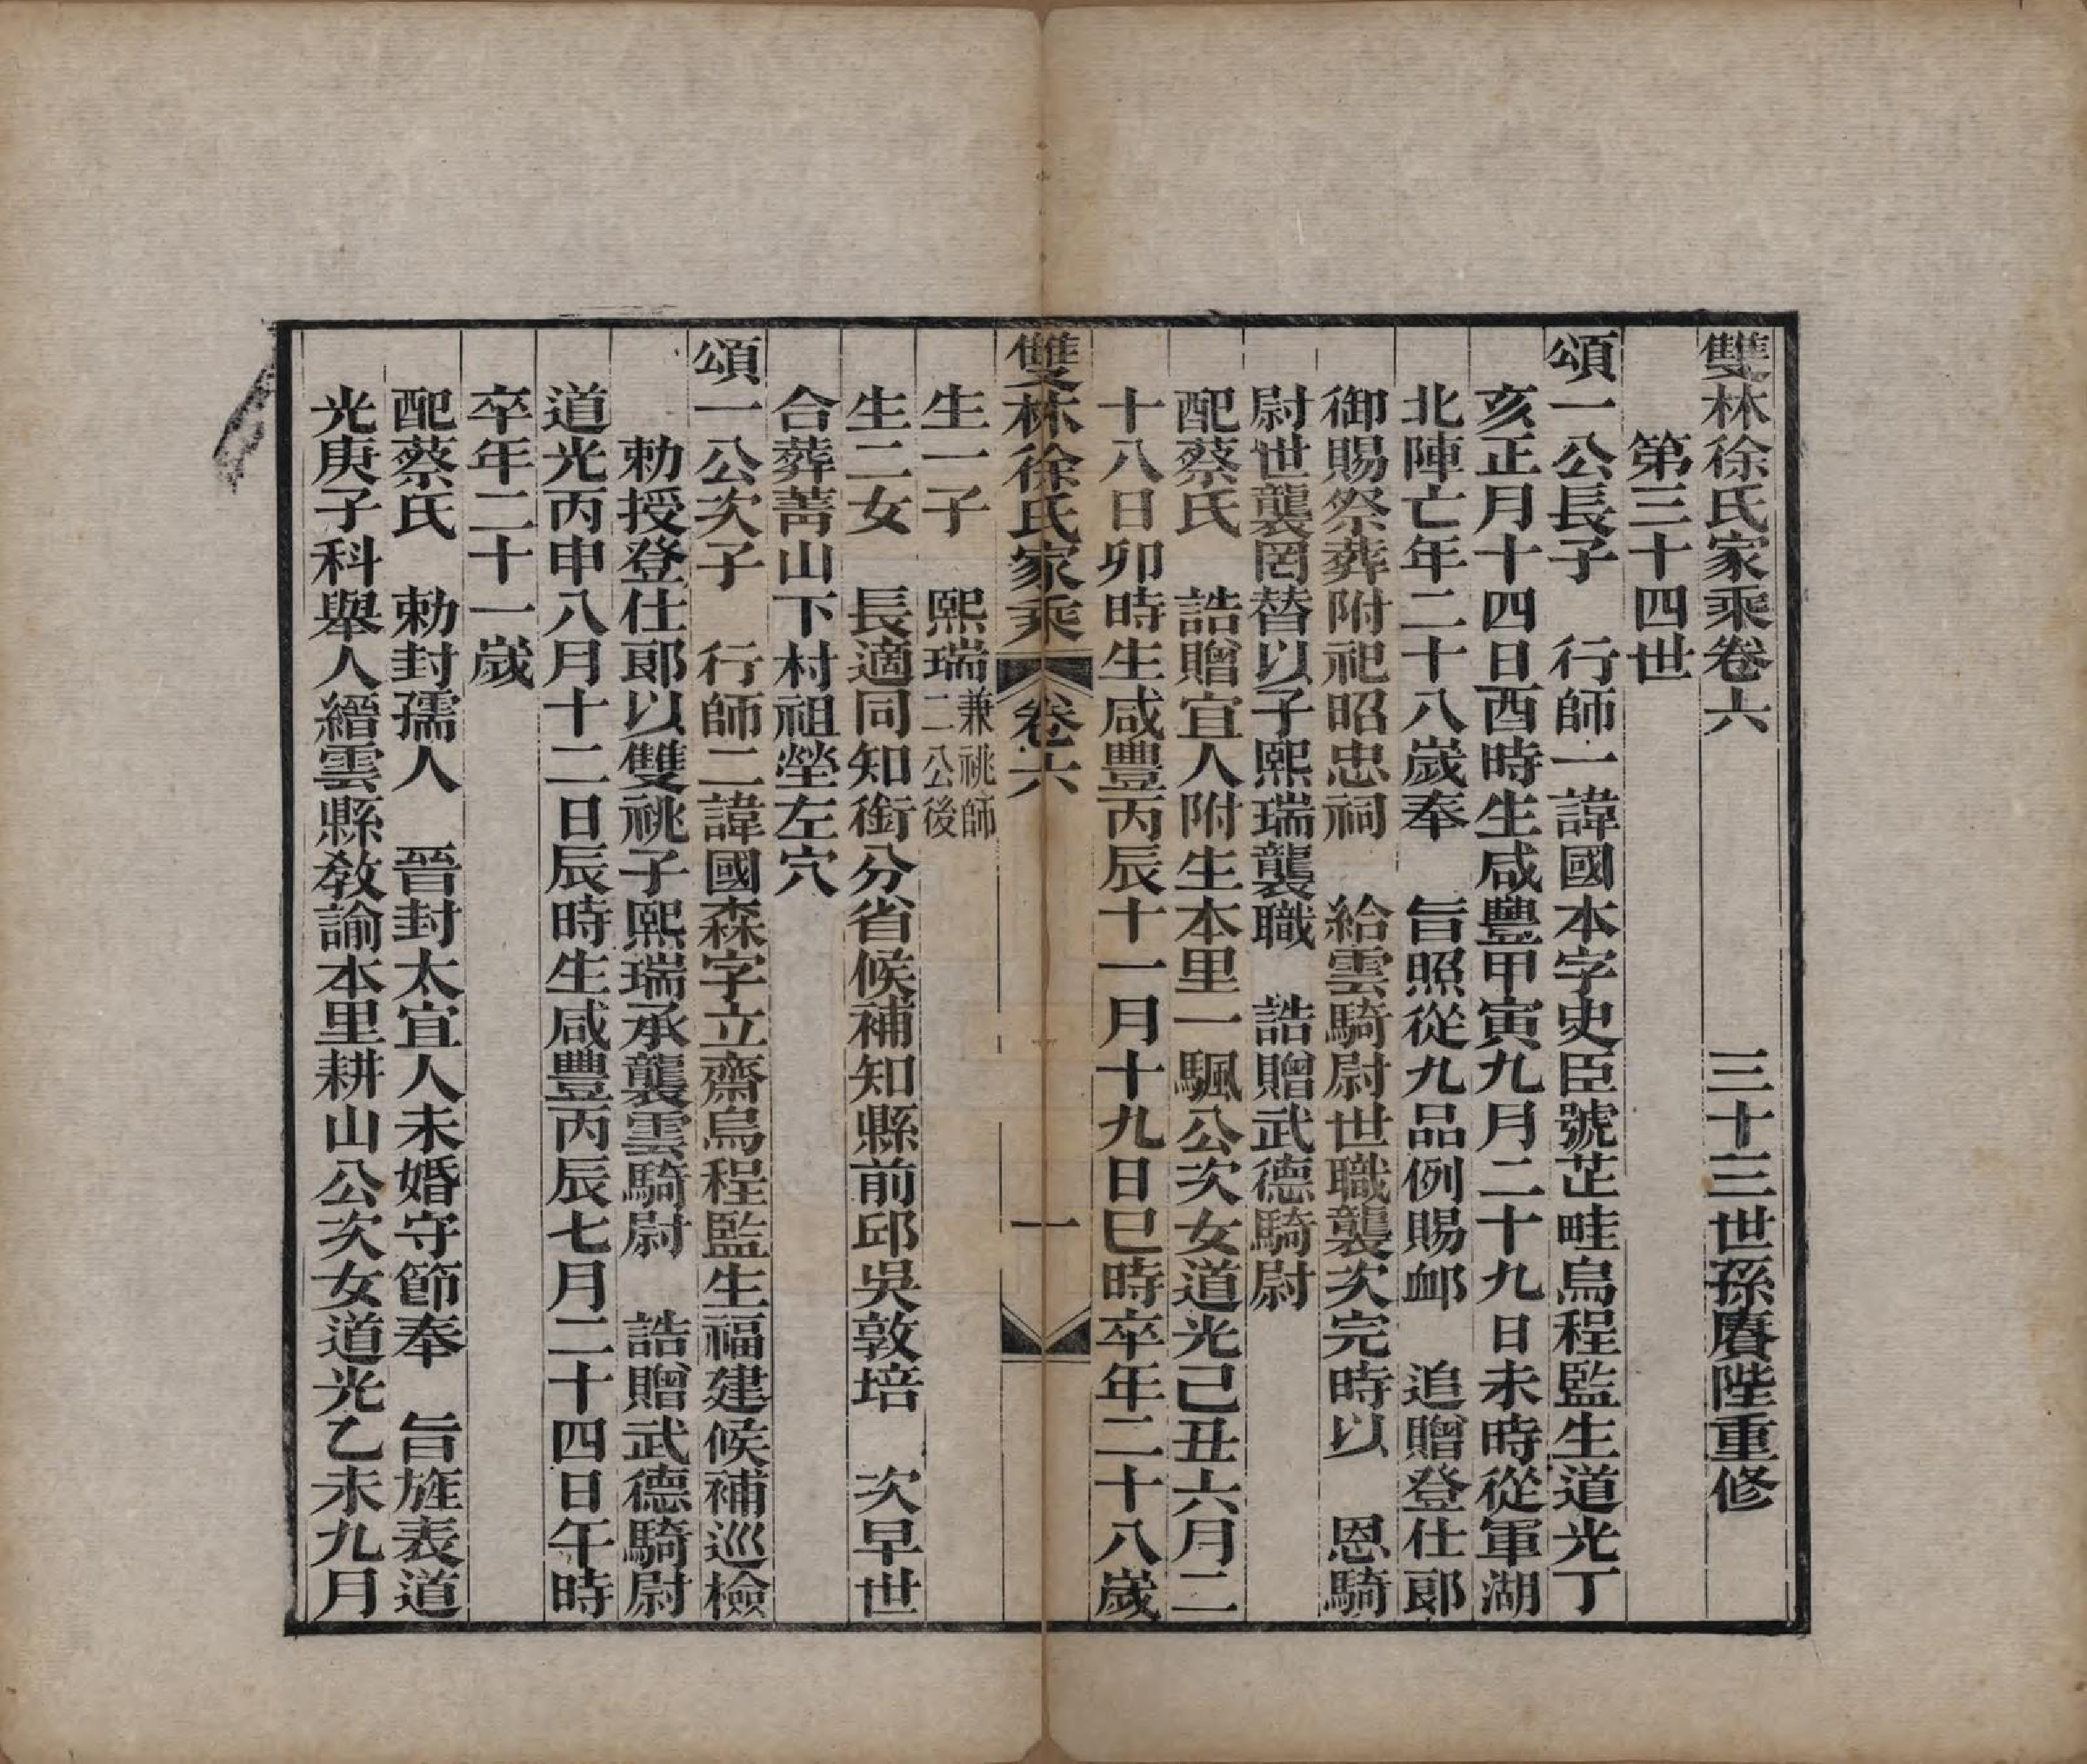 雙林徐氏家乘卷六　三十三世孫賡陛重修
第三十四世
頌一公長子　行師一諱國本字史臣號芷畦烏程監生道光丁
亥正月十四日酉時生咸豐甲寅九月二十九日未時從軍湖
北陣亡年二十八歲奉　旨照從九品例賜卹　追贈登仕郎
御賜祭葬附祀昭忠祠　給雲騎尉世職襲次完時以　恩騎
尉世襲罔替以子熙瑞襲職　誥贈武德騎尉
配蔡氏　誥贈宜人附生本里一颿公次女道光己丑六月二
十八日卯時生咸豐丙辰十一月十九日巳時卒年二十八歲
雙林徐氏家乘　卷六　一
生一子　熙瑞兼祧師二公後
生二女　長適同知銜分省候補知縣前邱吳敦培　次早世
合葬菁山下村祖塋左穴
頌一公次子　行師二諱國森字立齋烏程監生福建候補巡檢
勅授登仕郎以雙祧子熙瑞承襲雲騎尉　誥贈武德騎尉
道光丙申八月十二日辰時生咸豐丙辰七月二十四日午時
卒年二十一歲
配蔡氏　勅封孺人　晉封太宜人未婚守節奉　旨旌表道
光庚子科舉人縉雲縣教諭本里耕山公次女道光乙未九月